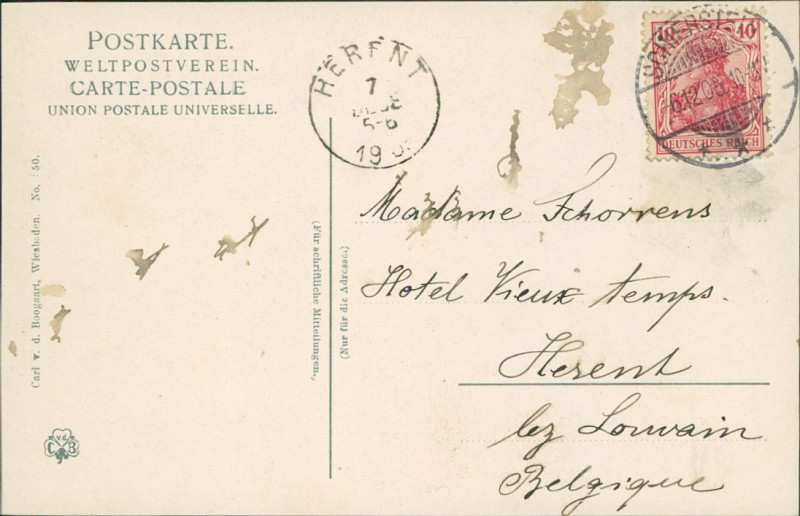 POSTKARTE.
WELTPOSTVEREIN.
CARTE-POSTALE
UNION POSTALE UNIVERSELLE.
HERENT
1
5-6
19
10 10
DEUTSCHES REICH
6.12.08
Carl v. d. Boogaart, Wiesbaden. No. 50.
(Für schriftliche Mitteilungen.
(Nur für die Adresse.)
Madame Schorrens
Hotel Vieux temps.
Herent
lez Louvain
Belgique
C v.d. B